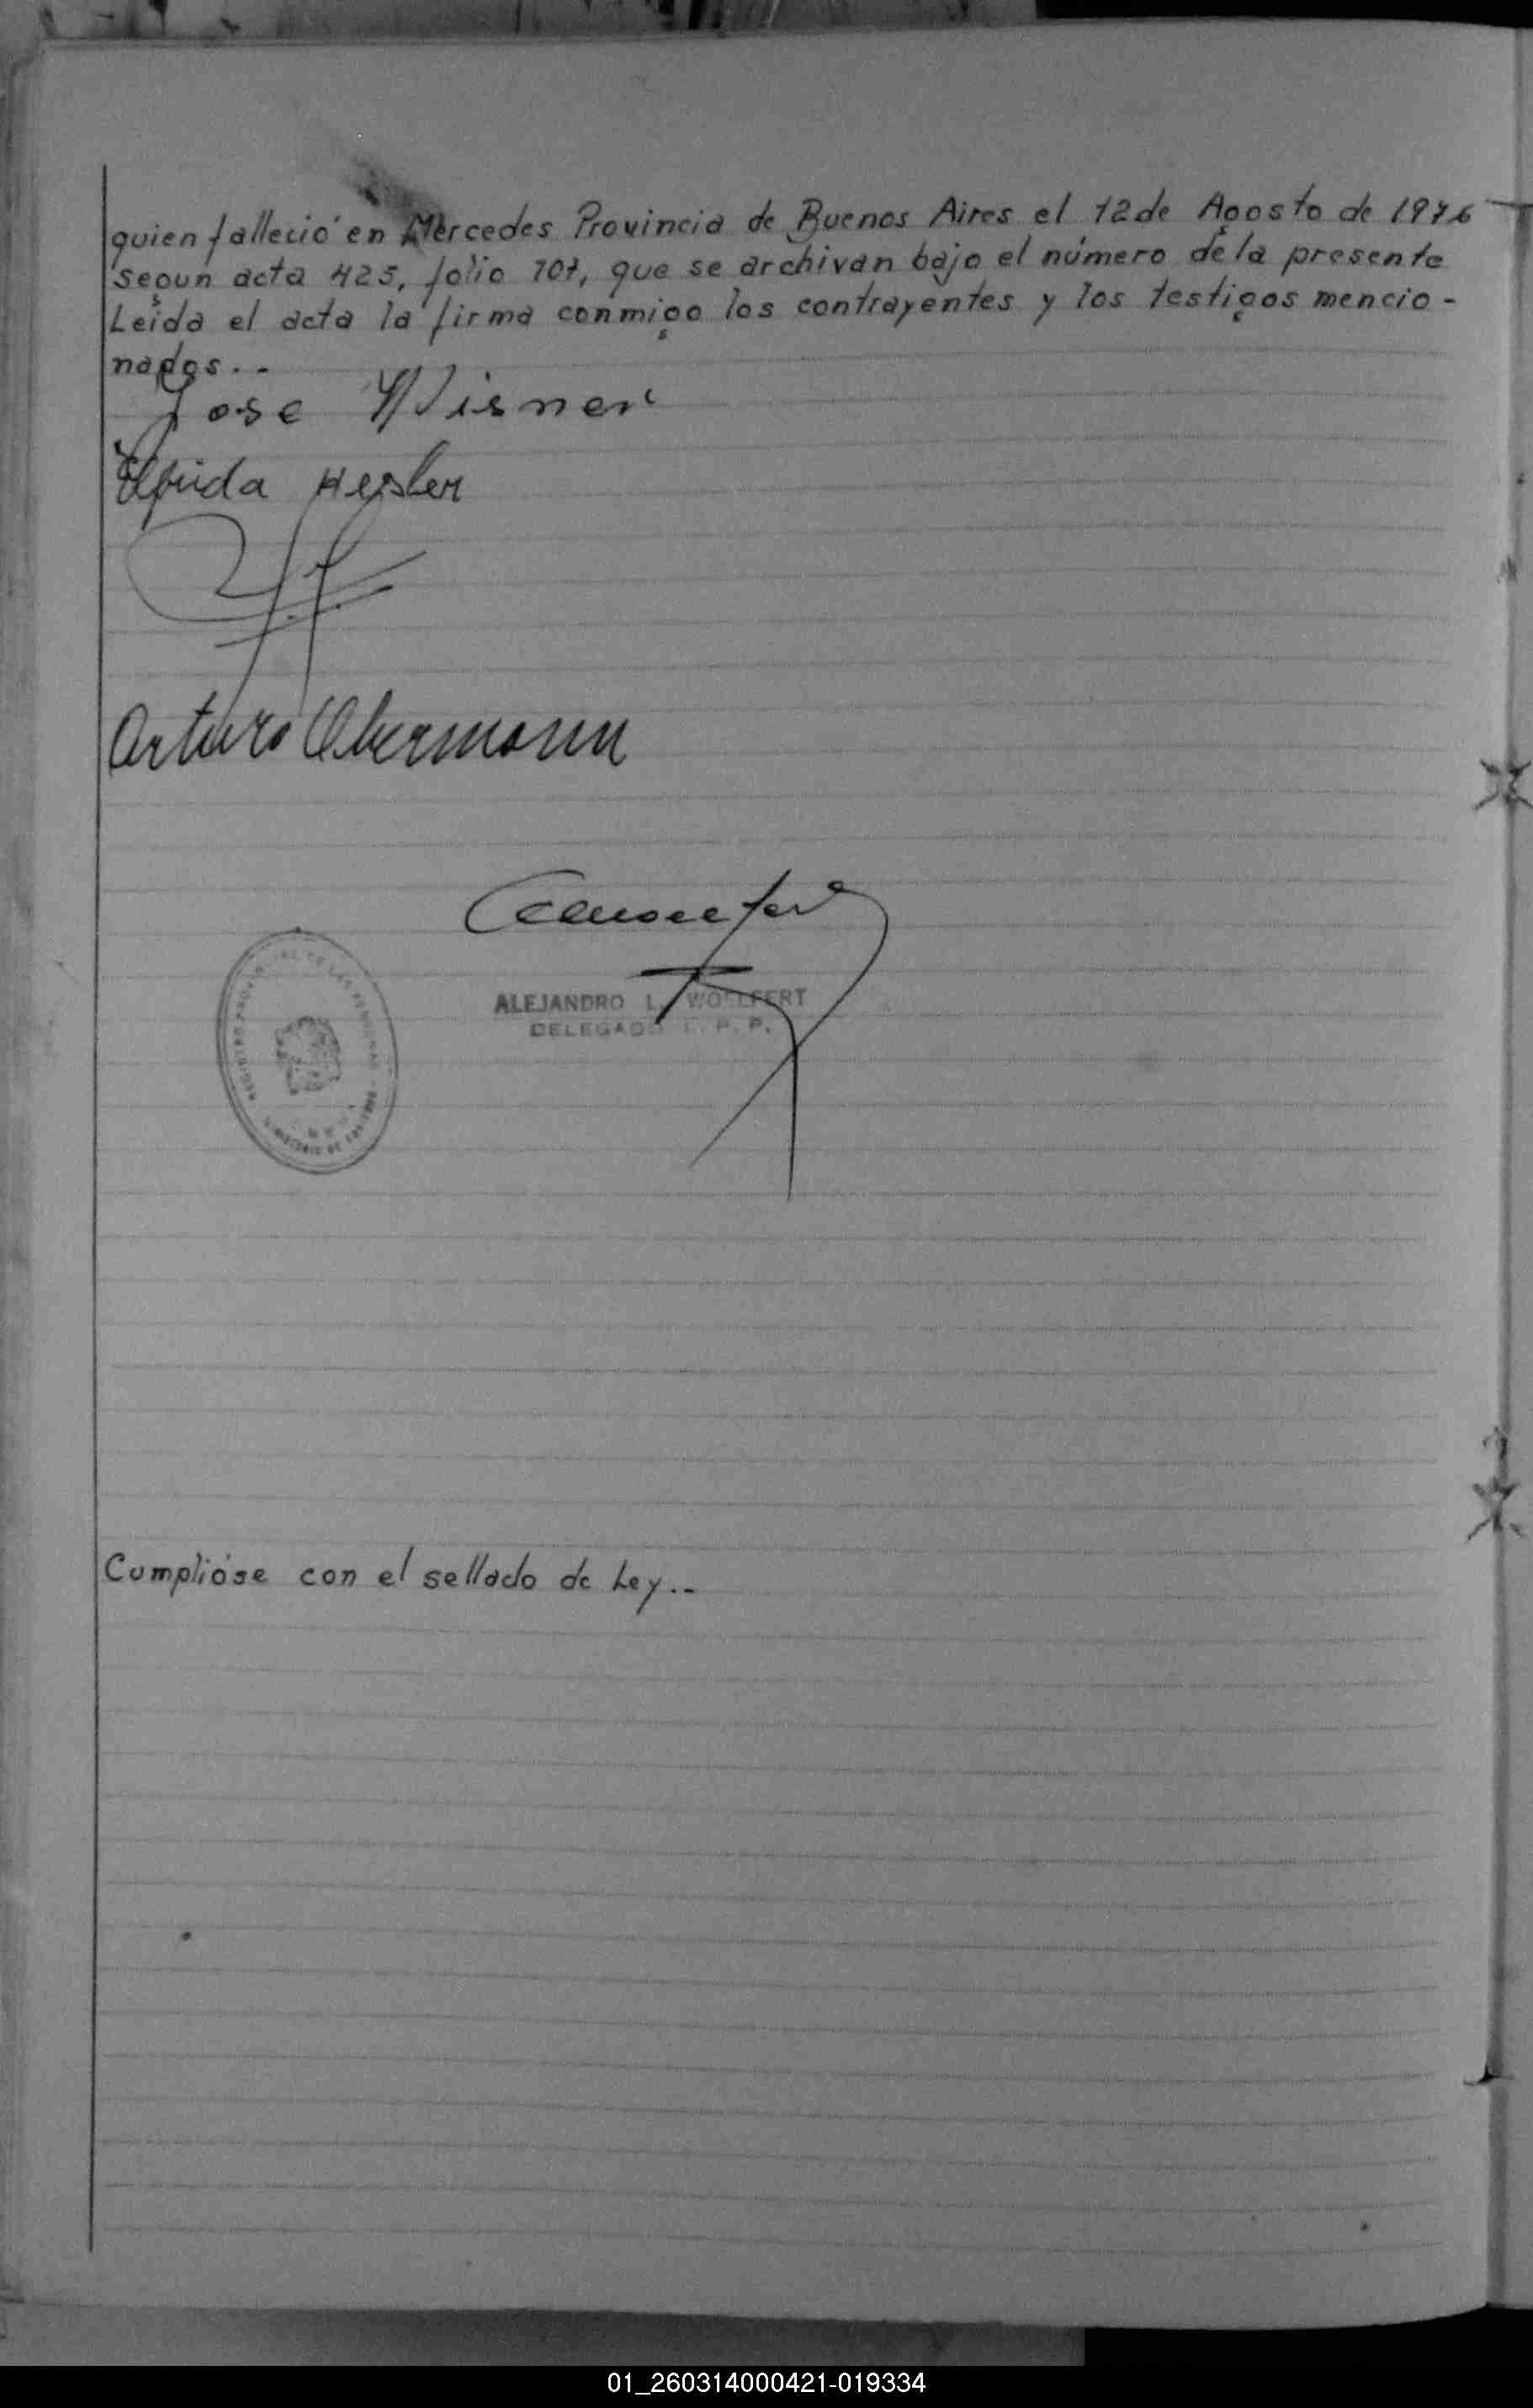 quien falleció en Mercedes Provincia de Buenos Aires el 12 de Agosto de 1976
segun acta 425, folio 107, que se archivan bajo el número de la presente
Leída el acta la firma conmigo los contrayentes y los testigos mencio-
nados..-
Jose Wisner
Hesler
Arturo Obermann
ALEJANDRO L. WOLFFERT
DELEGADO R. P. P.
REGISTRO PROVINCIAL DE LAS PERSONAS
MINISTERIO DE
Cumplióse con el sellado de Ley..-
01_260314000421-019334